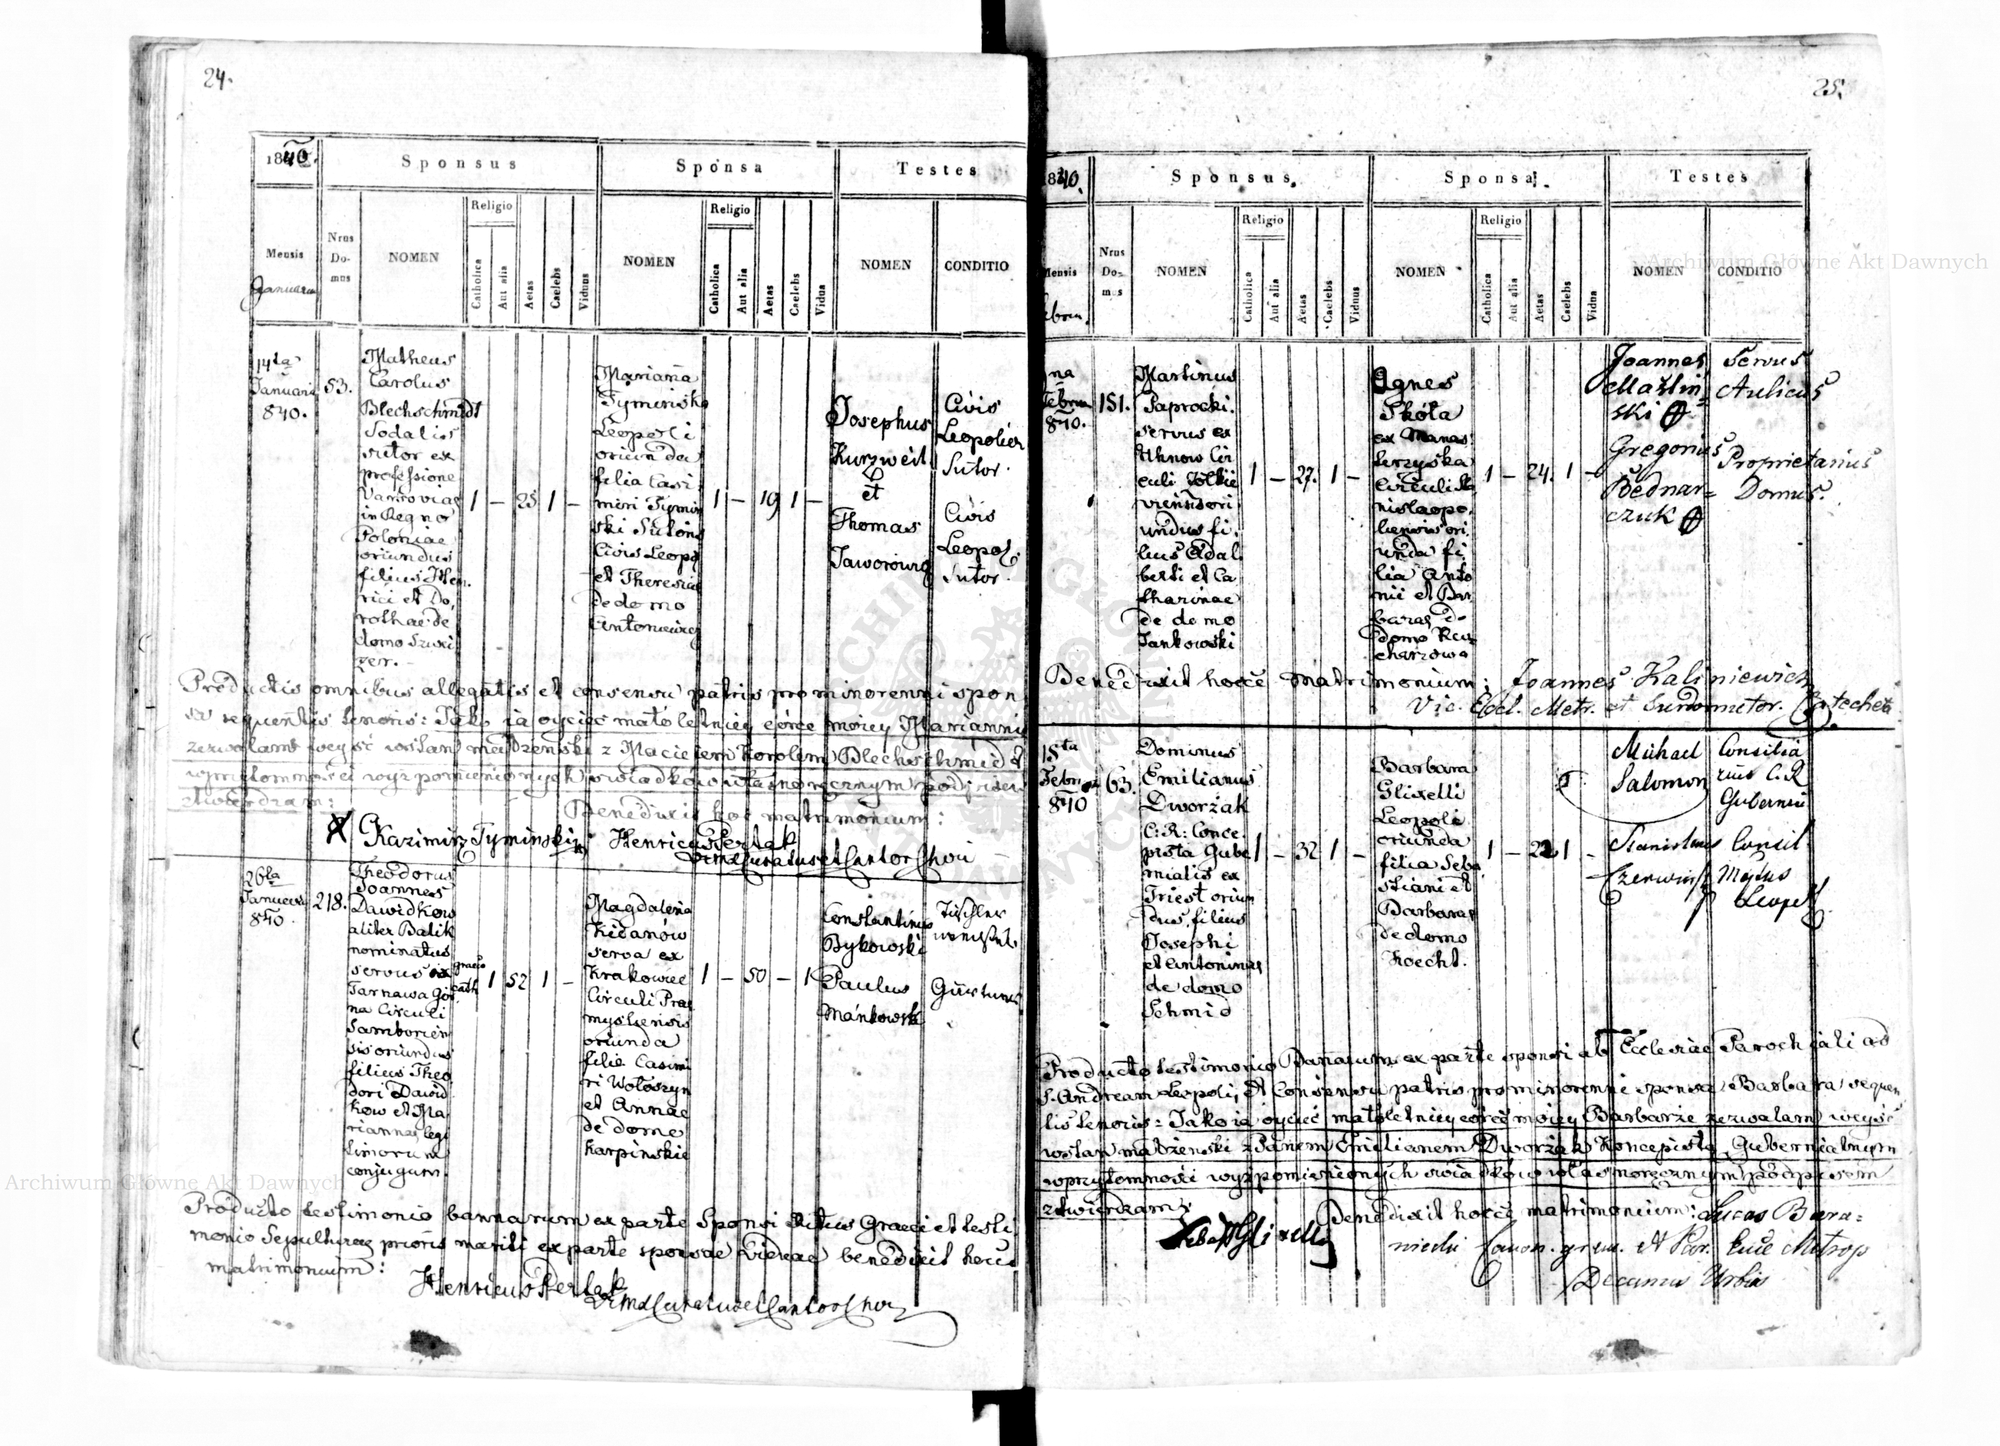 24.
1840.
Sponsus
Sponsa
Testes
Mensis
Januarii
Nrus
Do-
mus
NOMEN
Religio
Catholica
Aut alia
Aetas
Caelebs
Viduus
NOMEN
Religio
Catholica
Aut alia
Aetas
Caelebs
Vidua
NOMEN
CONDITIO
14ta
Januarii
840.
53.
Matheus
Carolus
Blechschmidt
Sodalis
sutor ex
professione
Varsoviae
in Regno
Poloniae
oriundus
filius Hen
rici et Do,
rothae de
domo Szwei
zer.
1 - 25 1 -
Marianna
Tyminska
Leopoli
oriunda
filia Casi
miri Tymin
ski Sutoris
Civis Leopo
et Theresiae
de domo
Antoniewicz
1 - 19 1 -
Josephus
Kurzweil
et
Thomas
Jaworowicz
Civis
Leopolien
Sutor.
Civis
Leopol.
Sutor.
Productis omnibus allegatis et consensu patris pro minorenni spon
sa sequentis tenoris: Jako ja oyciec małoletniey córce moiey Mariannie
zezwalam weyść w stan małżenski z Maciejem Karolem Blechschmidt
w przytomności wyż pomienionych swiadków własnoręcznym podpisem
stwierdzam:
Benedixit hoc matrimonium:
X Kazimirz Tyminski
Henricus Perlak
Vic. Met. Curatus et Cantor Chori
26ta
Januarii
840.
218.
Theodorus
Joannes
Dawidkow
aliter Balik
nominatus
servus ex
Tarnawa Gór
na Circuli
Samborien
sis oriundus
filius Theo
dori Dawid
kow et Ma
riannae legi
timorum
conjugum
graeco
cath
1 52 1 -
Magdalena
Kidanow
serva ex
Krakowiec
Circuli Prae
mysliensis
oriunda
filia Casimi
ri Wołoszyn
et Annae
de domo
Karpinskie
1 - 50 - 1
Constantinus
Bykowski
Paulus
Mankowski
Tischler
Producto testimonio bannorum ex parte Sponsi Ritus Graeci et testi
monio Sepulturae prioris mariti ex parte sponsae Viduae benedixit hocce
matrimonium:
Henricus Perlak
Vic. Met. Curatus et Cantor Chori
25.
1840.
Sponsus.
Sponsa.
Testes
Mensis
Febru.
Nrus
Do-
mus
NOMEN
Religio
Catholica
Aut alia
Aetas
Caelebs
Viduus
NOMEN
Religio
Catholica
Aut alia
Aetas
Caelebs
Vidua
NOMEN
CONDITIO
Febru
840.
151.
Martinus
Paprocki.
servus ex
Uhnow Cir
culi Zołkie
viensis ori
undus fi.
lius Adal
berti et Ca
tharinae
de domo
Jankowski
1 - 27. 1 -
Agnes
Skóta
ex Manas
terzyska
Circuli Sta
nislaopo
liensis ori
unda fi
lia Anto
nii et Bar
barae d-
domo Ku
charzowa
1 - 24. 1 -
Joannes
Mazlin
ski
Gregorius
Bednar=
czuk
Servus
Aulicus
Proprietarius
Domus.
Benedixit hocce matrimonium: Joannes Kaliniewicz
Vic. Eccl. Metr. et Catecheta
15ta
Febru
840
63.
Dominus
Emilianus
Dworżak
C: R: Conce
pista Gube
rnialis ex
Triest oriun
dus, filius
Josephi
et Antoninae
de domo
Schmid
1 - 32 1 -
Barbara
Glixelli
Leopoli
oriunda
filia Seba
stiani et
Barbarae
de domo
Hoecht.
1 - 22 1 -
Michael
Salomon
Stanislaus
Czerwins
Consilia
rius C. R
Gubernii
Consil.
Leopol.
Producto testimonio Bannorum ex parte sponsi ab Ecclesiae Parochiali ad
S. Andream Leopoli, et Consensu patris pro minorenni sponsa Barbara sequen
tis tenoris: Jako ja oyciec małoletniey córce moiey Barbarze zezwalam weyść
w stan małżenski z Panem Emilianem Dworżak Koncepistą Gubernialnym
w przytomności wyż pomienionych swiadków własnoręcznym podpisem
stwierdzam:
Seba Glixelli
Benedixit hocce matrimonium: Lucas Bara=
niecki Canon. grem. et Par. Eccl. Metrop
Decanus Urbis
Archiwum Główne Akt Dawnych
Archiwum Główne Akt Dawnych
ARCHIWUM GŁÓWNE AKT DAWNYCH